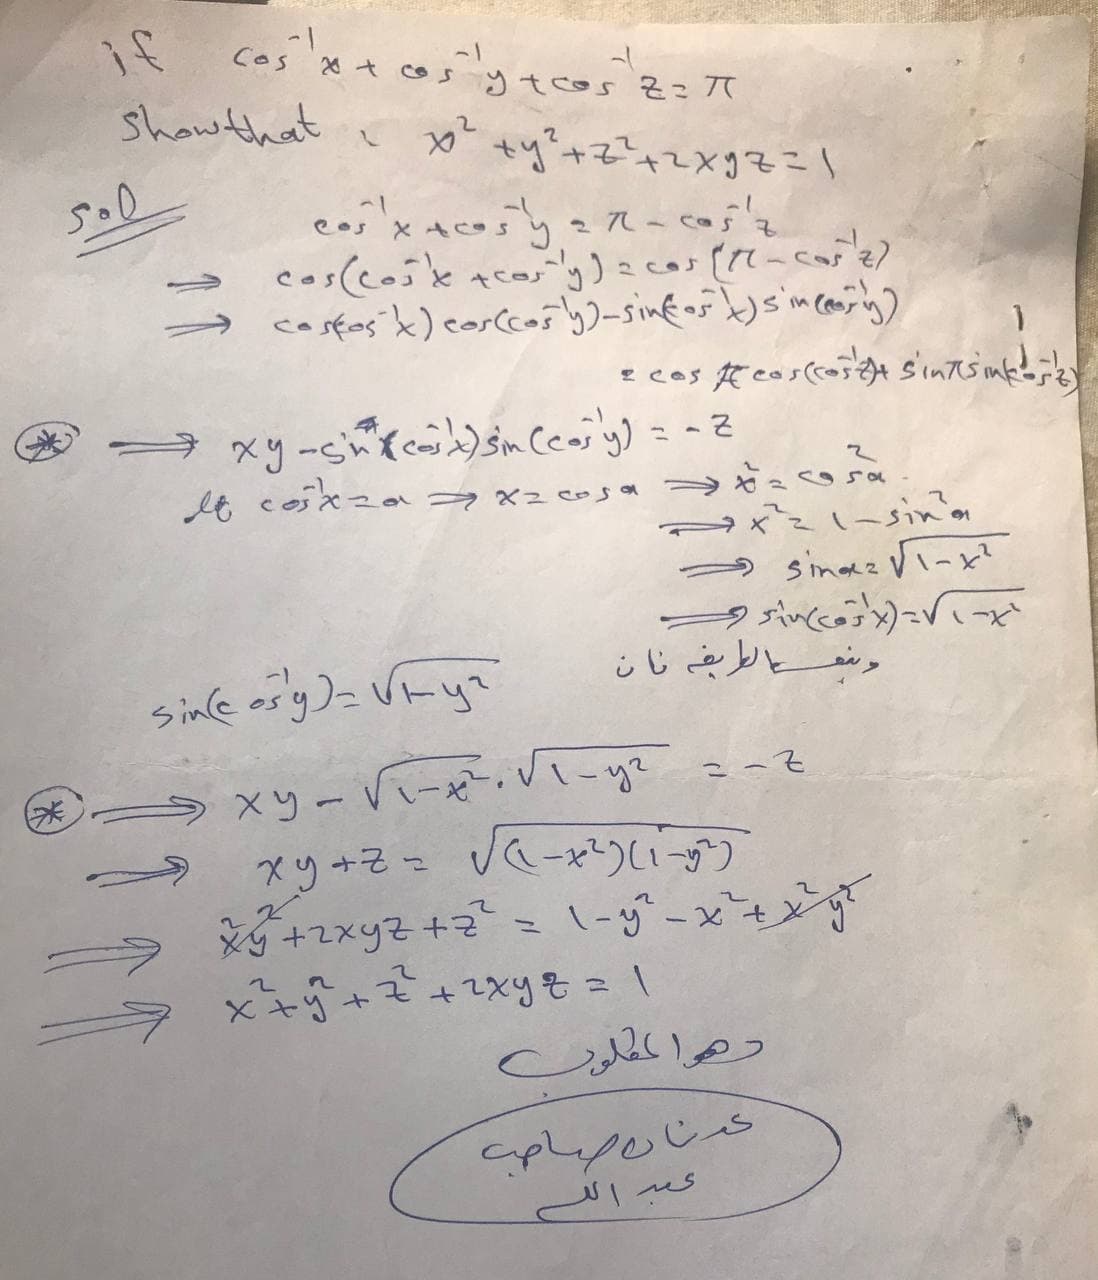 if cos⁻¹x + cos⁻¹y + cos⁻¹z = π
show that : x² + y² + z² + 2xyz = 1
sol
cos⁻¹x + cos⁻¹y = π - cos⁻¹z
⇒ cos(cos⁻¹x + cos⁻¹y) = cos(π - cos⁻¹z)
⇒ cos(cos⁻¹x) cos(cos⁻¹y) - sin(cos⁻¹x) sin(cos⁻¹y)
= cos π cos(cos⁻¹z) + sin π sin(cos⁻¹z)
⊛ ⇒ xy - sin(cos⁻¹x) sin(cos⁻¹y) = -z
let cos⁻¹x = a ⇒ x = cos a ⇒ x² = cos²a
⇒ x² = 1 - sin²a
⇒ sin a = √(1-x²)
⇒ sin(cos⁻¹x) = √(1-x²)
وبنفس الطريقة فان
sin(cos⁻¹y) = √(1-y²)
⊛ ⇒ xy - √(1-x²) . √(1-y²) = -z
⇒ xy + z = √((1-x²)(1-y²))
⇒ x²y² + 2xyz + z² = 1 - y² - x² + x²y²
⇒ x² + y² + z² + 2xyz = 1
وهو المطلوب
عدنان صاحب
عبد الله